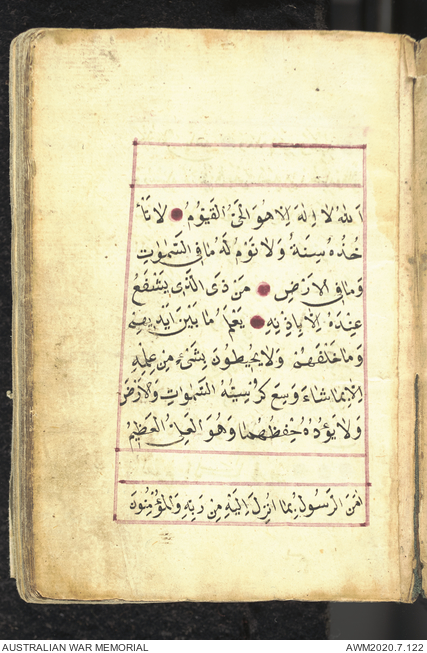 اَللهُ لَا اِلٰهَ اِلَّا هُوَ الْحَىُّ الْقَيُّومُ لَا تَأْ
خُذُهُ سِنَةٌ وَلَا نَوْمٌ لَهُ مَا فِى السَّمٰوَاتِ
وَمَا فِى الْاَرْضِ مَنْ ذَى الَّذٖى يَشْفَعُ
عِنْدَهُ اِلَّا بِاِذْنِهِ يَعْلَمُ مَا بَيْنَ اَيْدٖيهِمْ
وَمَا خَلْفَهُمْ وَلَا يُحٖيطُونَ بِشَىْءٍ مِنْ عِلْمِهِ
اِلَّا بِمَا شَاءَ وَسِعَ كُرْسِيُّهُ السَّمٰوَاتِ وَالْاَرْضَ
وَلَا يَؤُدُهُ حِفْظُهُمَا وَهُوَ الْعَلِىُّ الْعَظٖيمُ
اٰمَنَ الرَّسُولُ بِمَا اُنْزِلَ اِلَيْهِ مِنْ رَبِّهِ وَالْمُؤْمِنُونَ
AUSTRALIAN WAR MEMORIAL
AWM2020.7.122